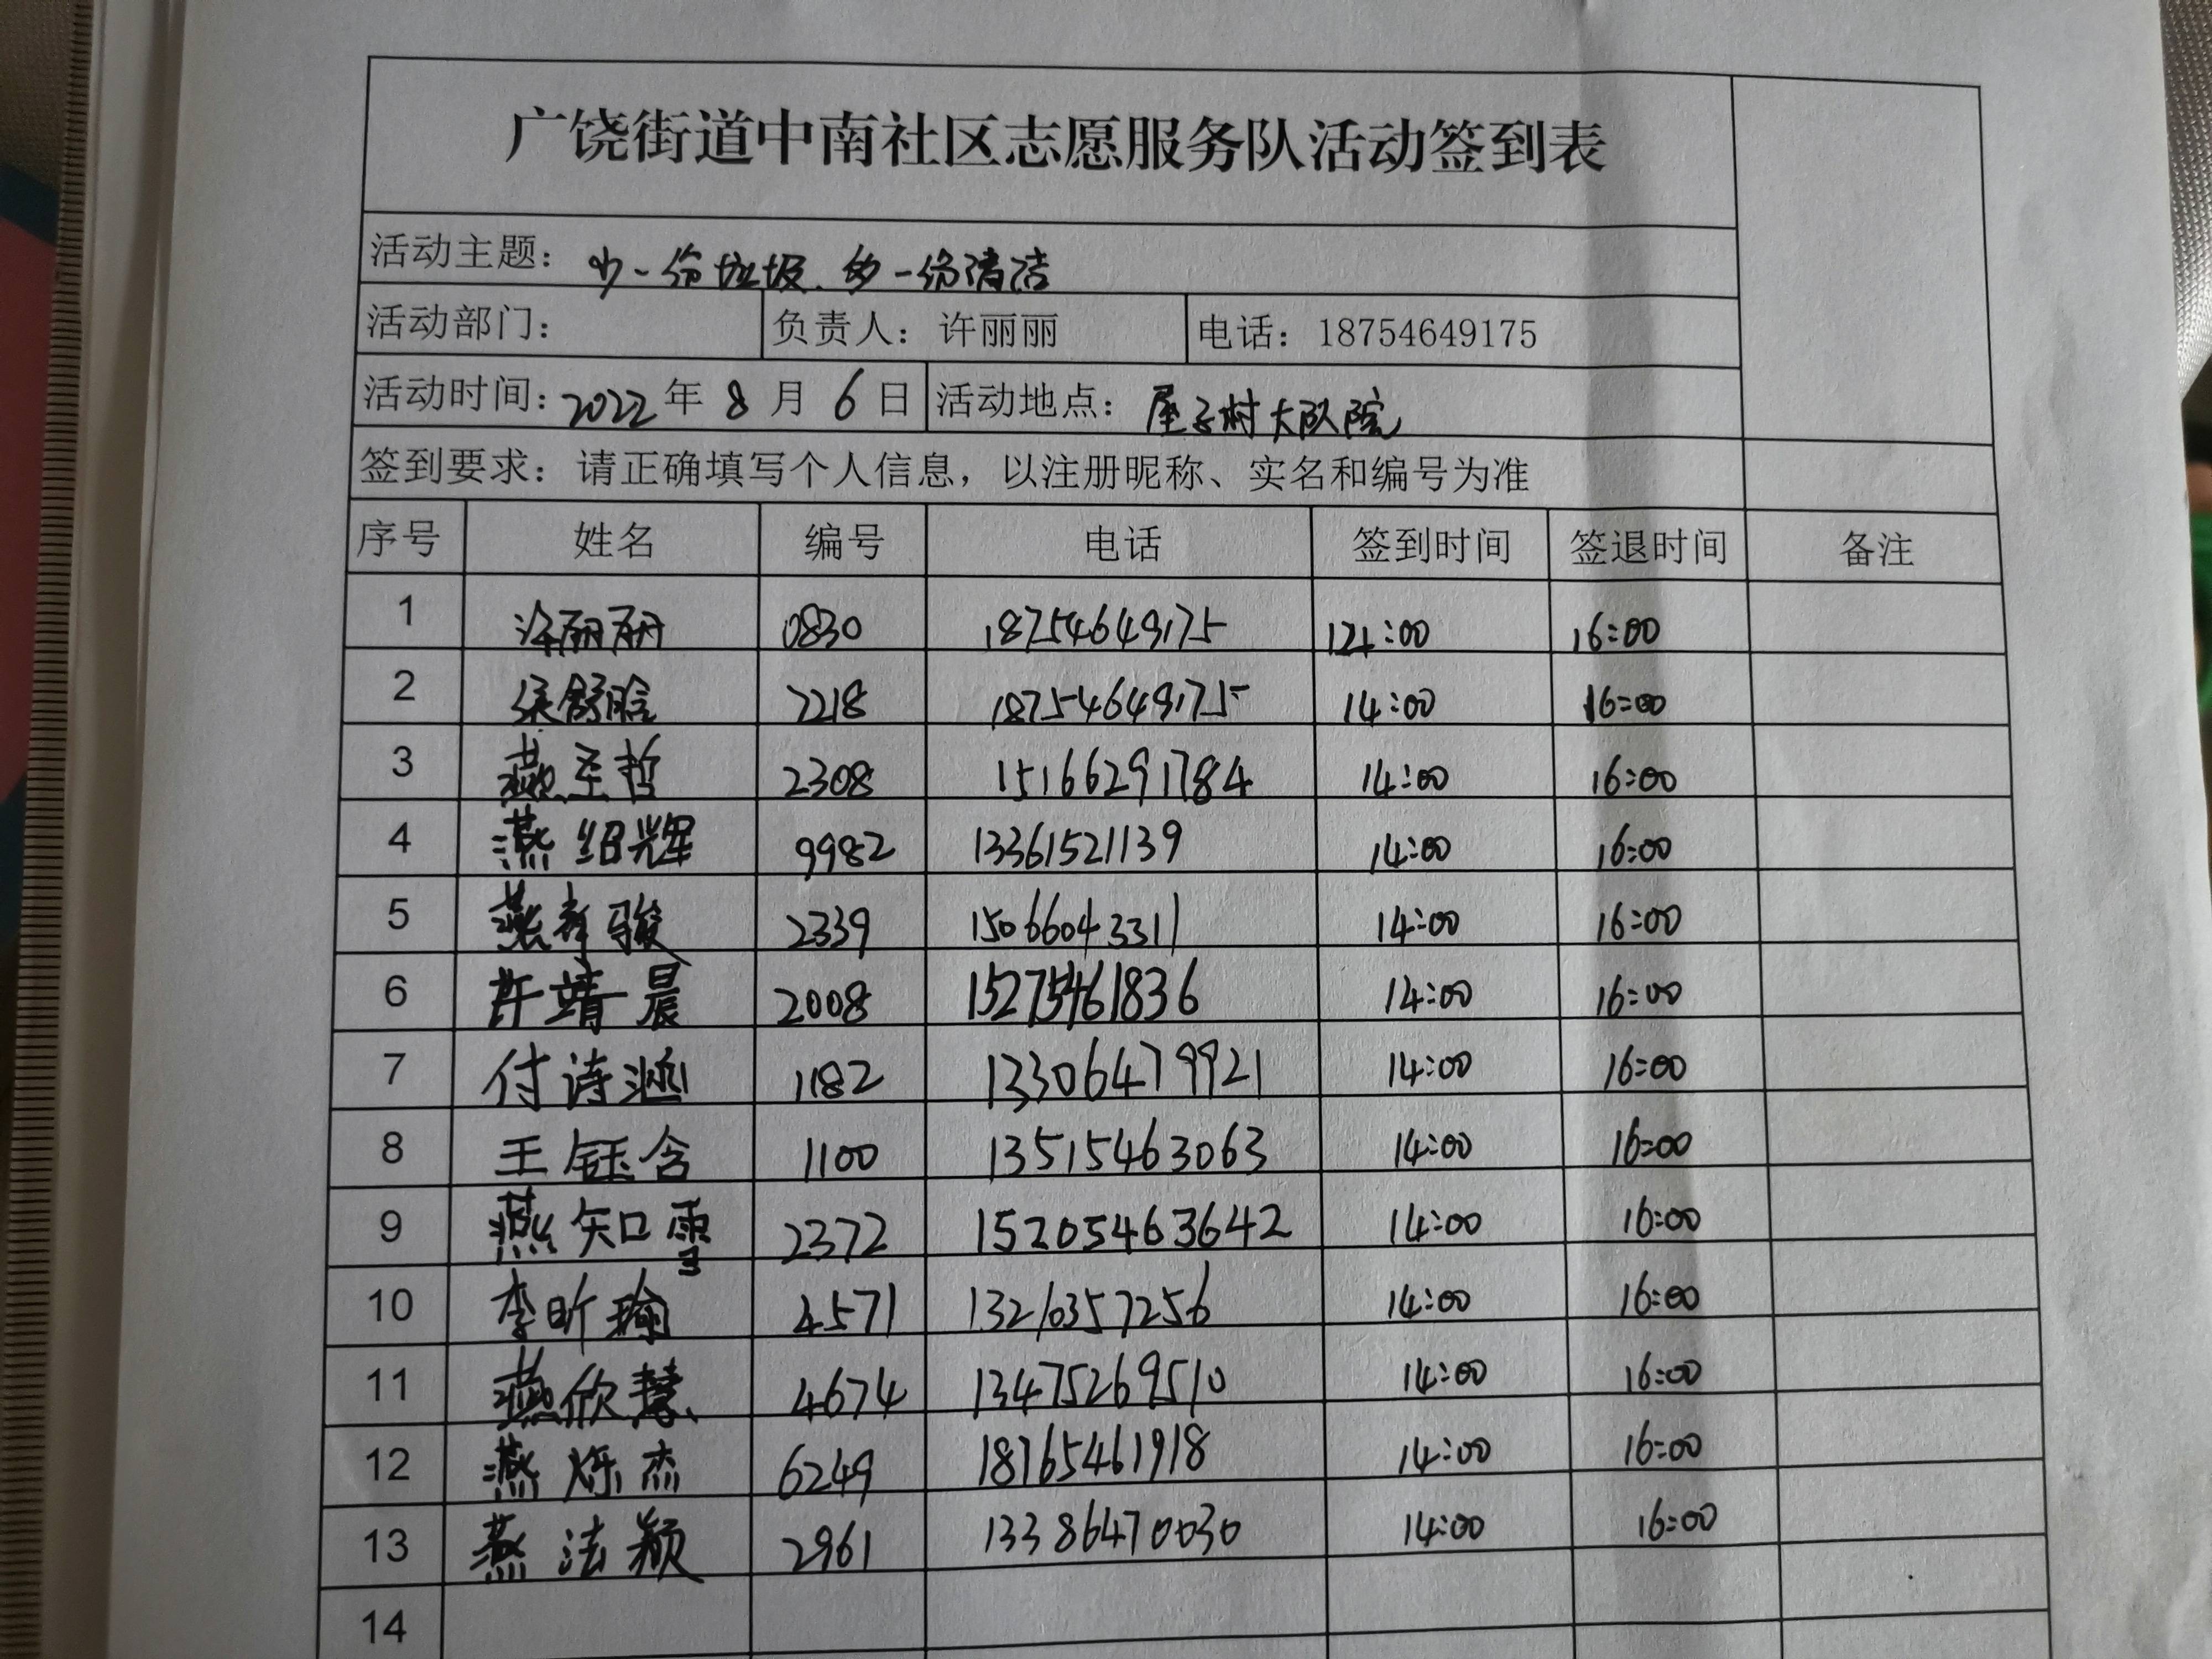 广饶街道中南社区志愿服务队活动签到表
活动主题：少一份垃圾、多一份清洁
活动部门： 负责人：许丽丽 电话：18754649175
活动时间：2022年8月6日 活动地点：屋子村大队院
签到要求：请正确填写个人信息，以注册昵称、实名和编号为准
序号 姓名 编号 电话 签到时间 签退时间 备注
1 许丽丽 0830 18754649175 14:00 16:00
2 舒晗 2218 18754649175 14:00 16:00
3 燕至哲 2308 15166291784 14:00 16:00
4 燕绍辉 9982 13361521139 14:00 16:00
5 燕孝骏 2339 15066043311 14:00 16:00
6 许靖晨 2008 15275461836 14:00 16:00
7 付诗涵 1182 13306479921 14:00 16:00
8 王钰含 1100 13515463063 14:00 16:00
9 燕知雪 2372 15205463642 14:00 16:00
10 李昕瑜 4571 13210357256 14:00 16:00
11 燕欣慧 4674 13475269510 14:00 16:00
12 燕烁杰 6249 18765461918 14:00 16:00
13 燕法颖 2961 13386470030 14:00 16:00
14